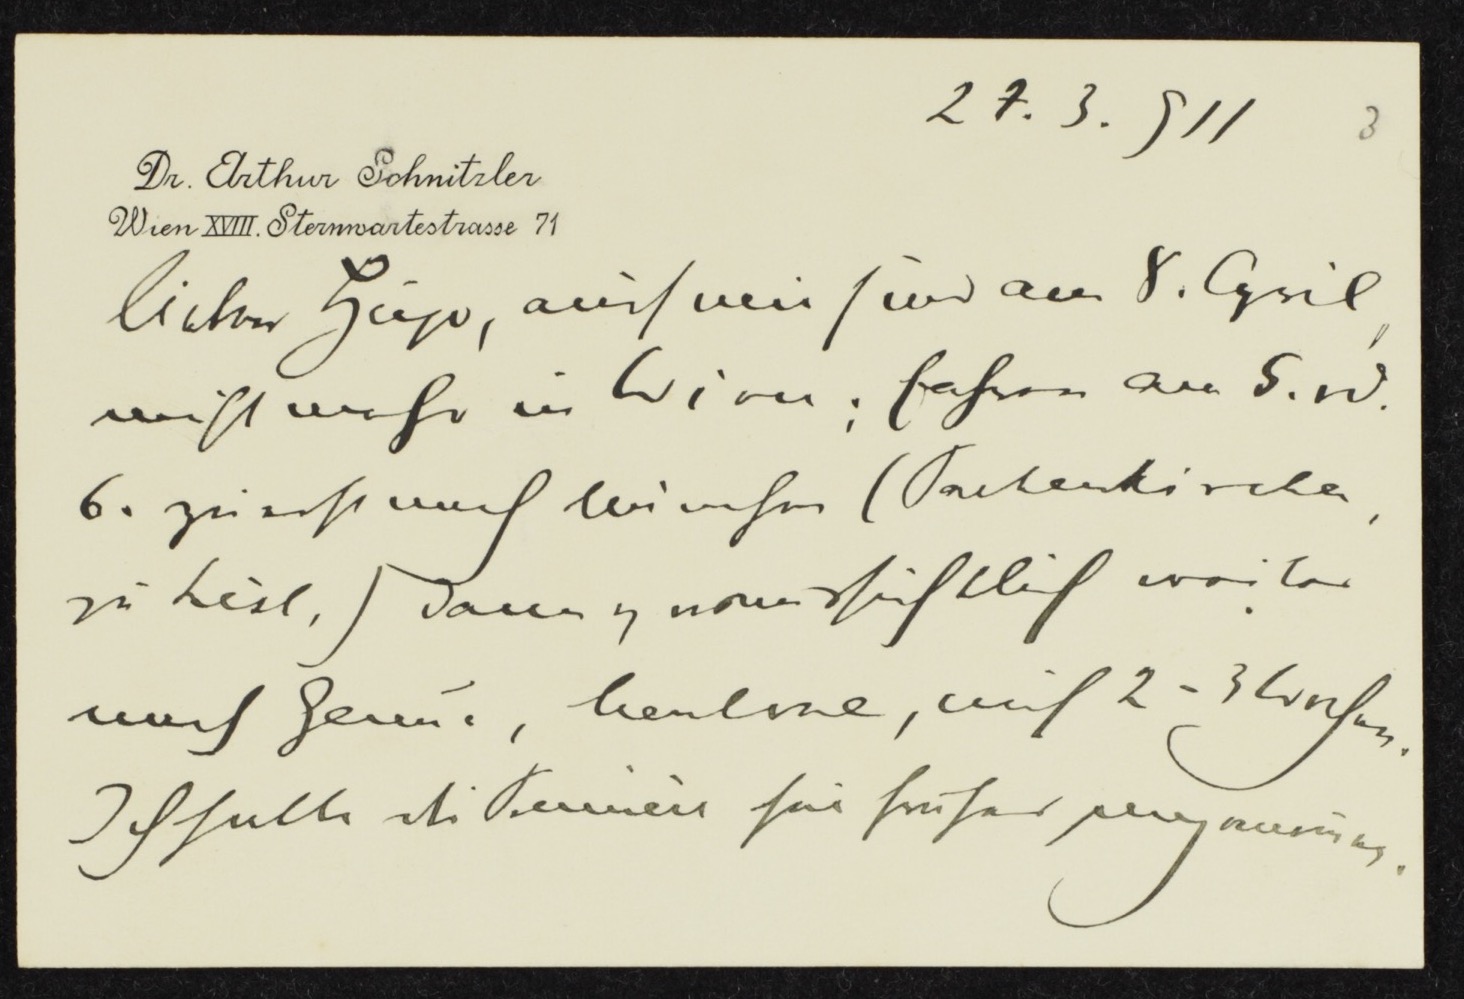 27. 3. 911
3
Dr. Arthur Schnitzler
Wien XVIII. Sternwartestrasse 71
lieber Hugo, auch wir sind am 8. April
nicht mehr in Wien; fahren am 5. od.
6. zuerst nach München (Partenkirchen,
zu Liesl,) dann, voraussichtlich weiter
nach Genua, Mentone, auf 2 - 3 Wochen.
Ich hatte die Première für früher angenommen.